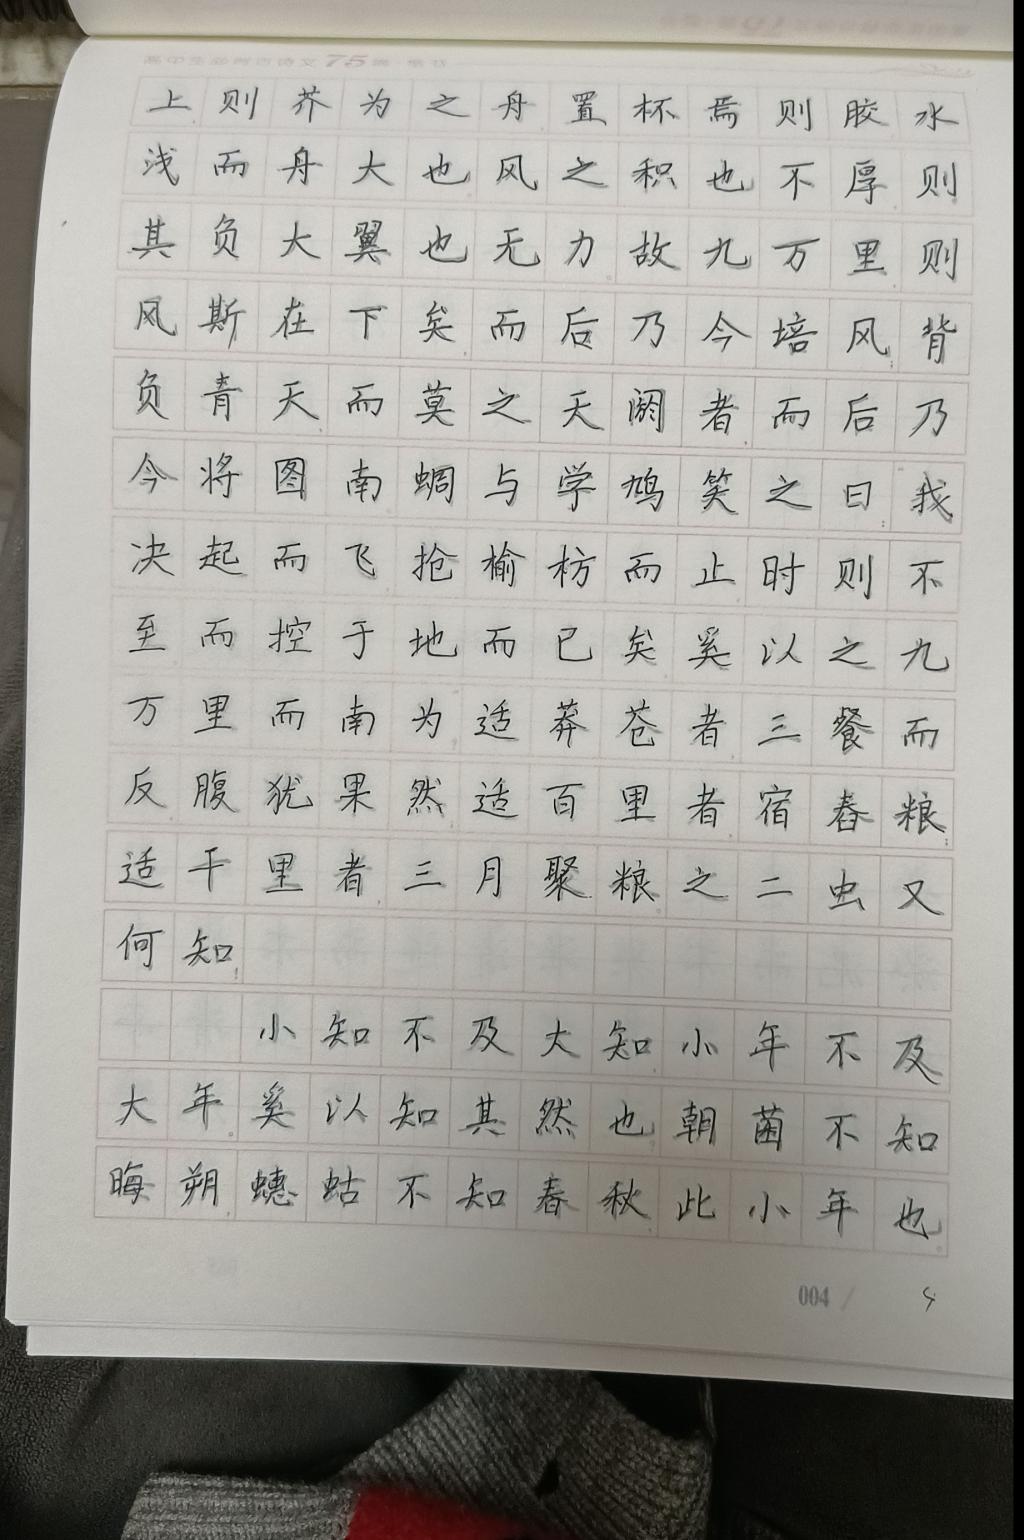 高中生必背古诗文75篇·楷书
上则芥为之舟置杯焉则胶水
浅而舟大也风之积也不厚则
其负大翼也无力故九万里则
风斯在下矣而后乃今培风背
负青天而莫之夭阏者而后乃
今将图南蜩与学鸠笑之曰我
决起而飞抢榆枋而止时则不
至而控于地而已矣奚以之九
万里而南为适莽苍者三餐而
反腹犹果然适百里者宿舂粮
适千里者三月聚粮之二虫又
何知
小知不及大知小年不及
大年奚以知其然也朝菌不知
晦朔蟪蛄不知春秋此小年也
004 /
4